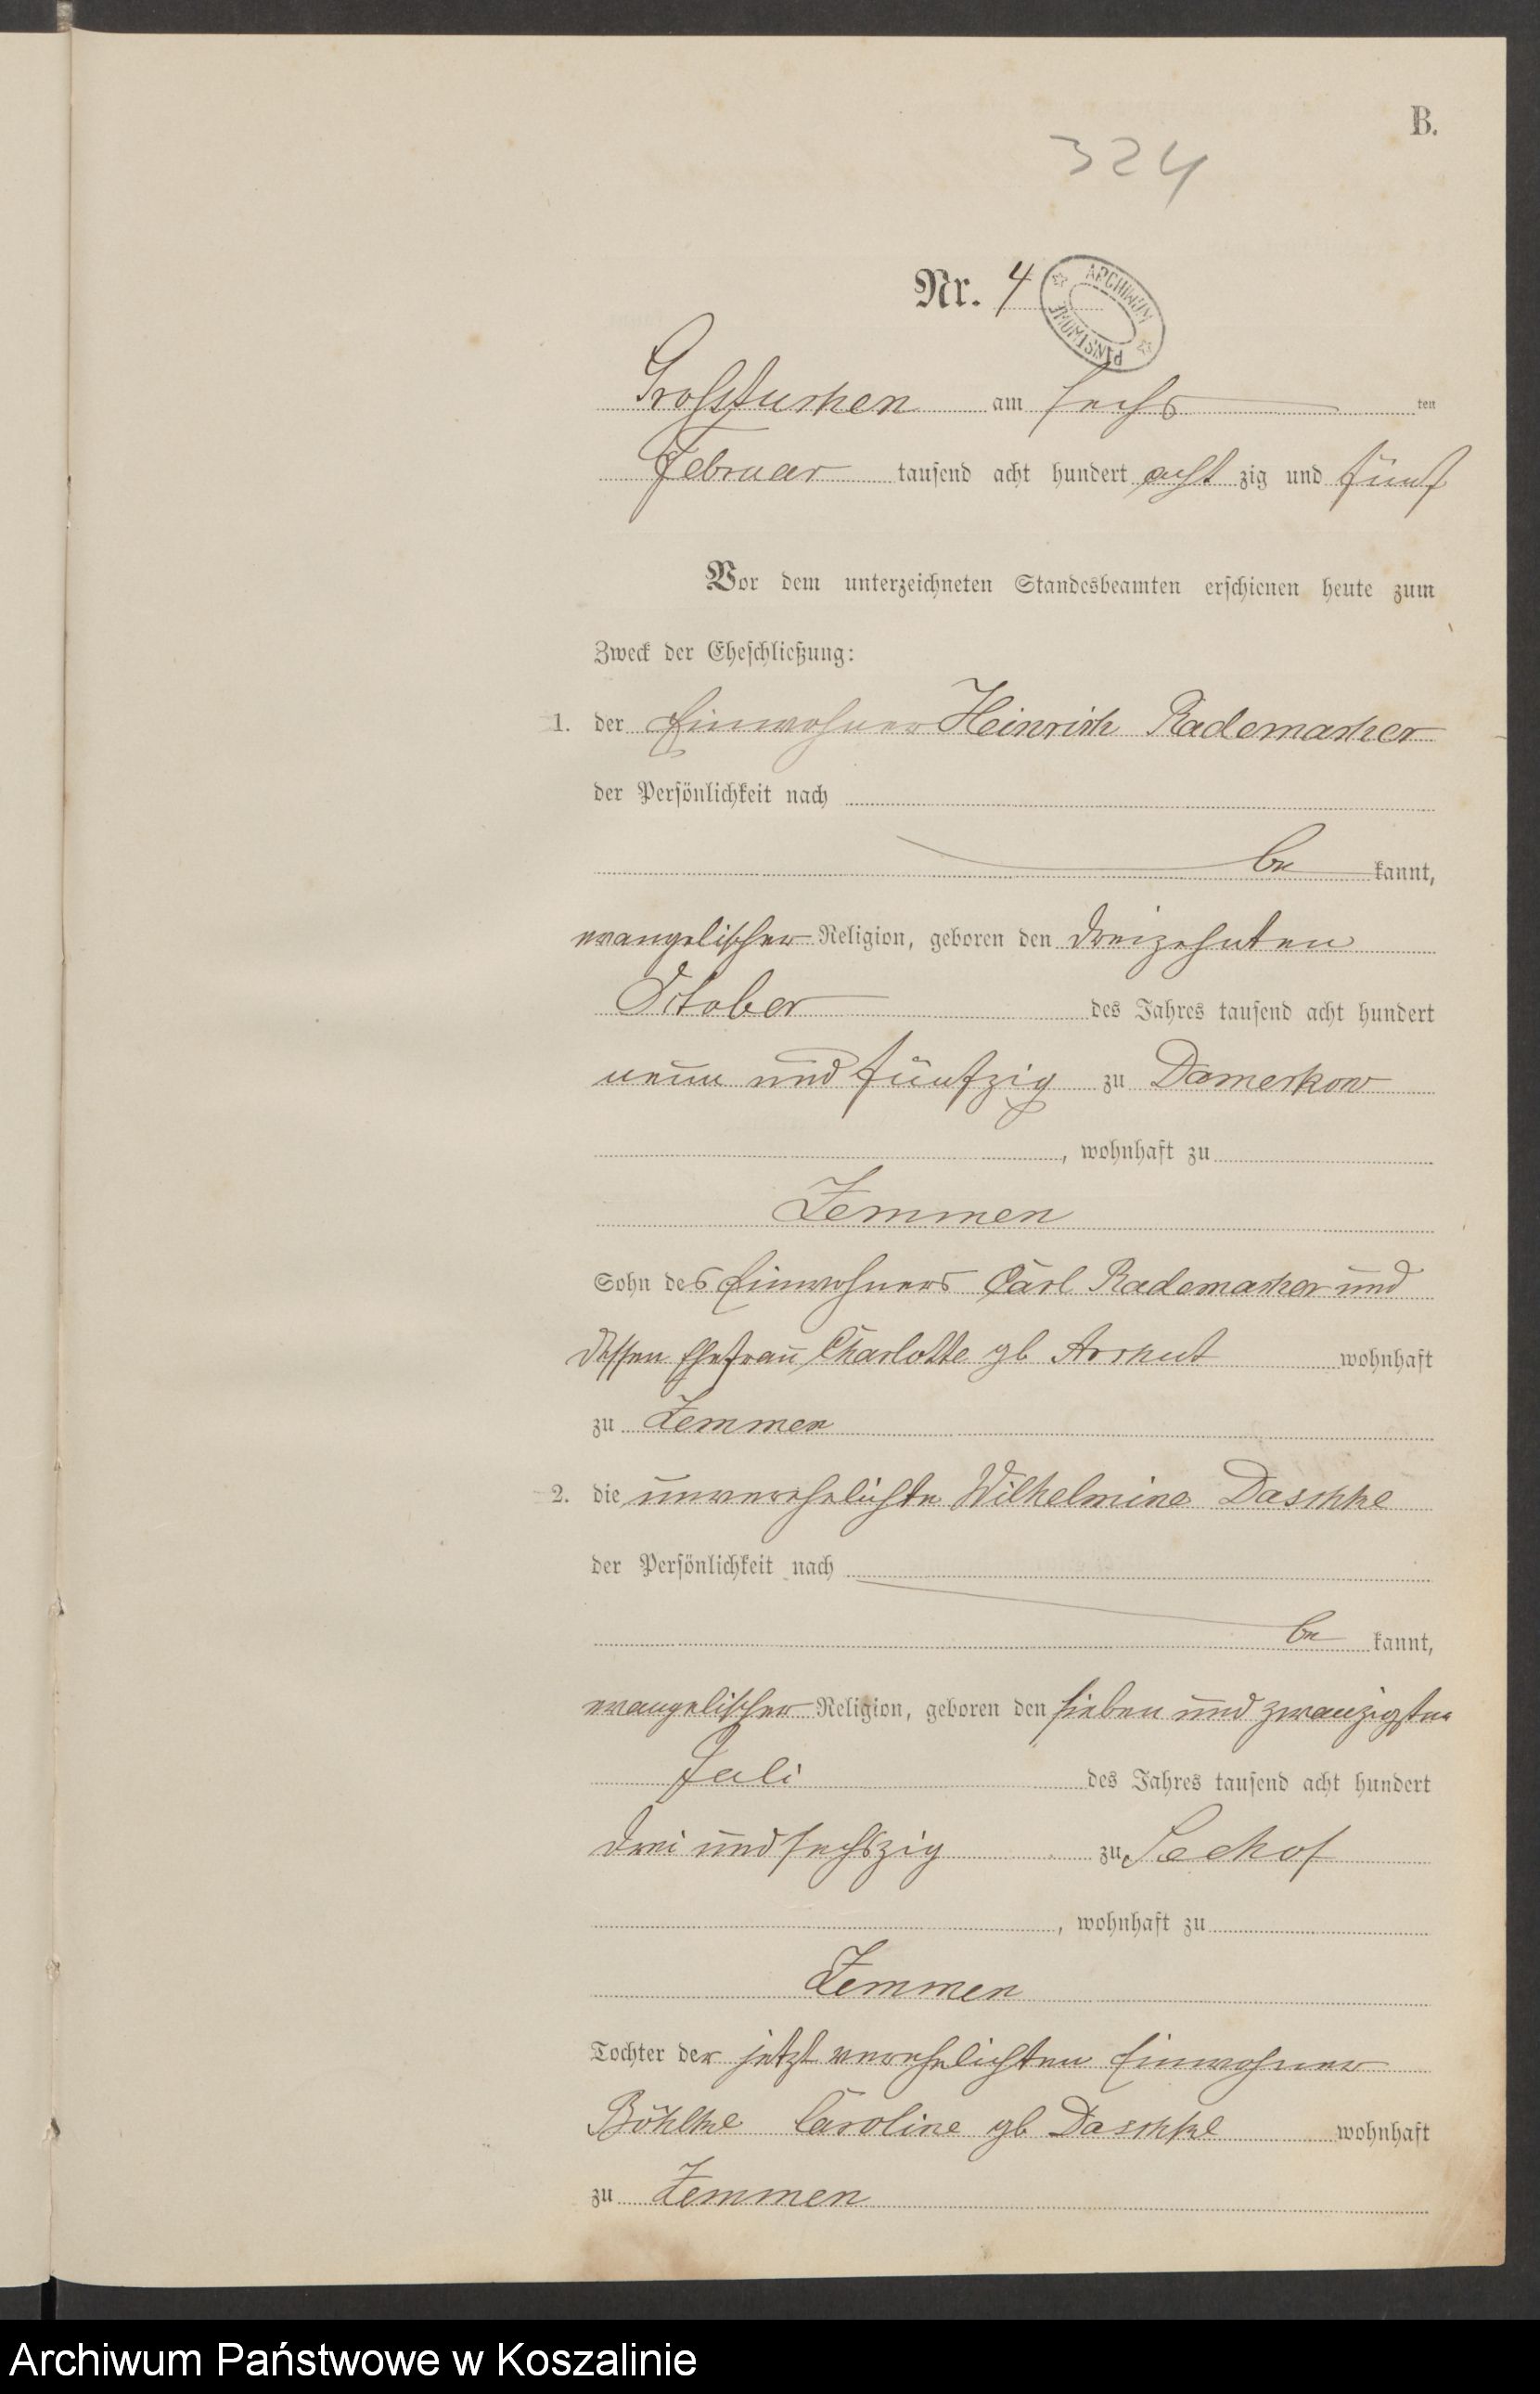 B.
324
Nr. 4
ARCHIWUM PAŃSTWOWE
Grosstuchen am sechsten
Februar tausend acht hundert acht zig und fünf
Vor dem unterzeichneten Standesbeamten erschienen heute zum
Zweck der Eheschließung:
1. der Einwohner Heinrich Rademacher
der Persönlichkeit nach
be kannt,
evangelischer Religion, geboren den dreizehnten
October des Jahres tausend acht hundert
neun und fünfzig zu Damerkow
, wohnhaft zu
Zemmen
Sohn des Einwohners Carl Rademacher und
dessen Ehefrau Charlotte gb wohnhaft
zu Zemmen
2. die unverehelichte Wilhelmine Daschke
der Persönlichkeit nach
be kannt,
evangelischer Religion, geboren den sieben und zwanzigsten
Juli des Jahres tausend acht hundert
drei und sechszig zu Seehof
, wohnhaft zu
Zemmen
Tochter der jetzt verehelichten Einwohner
Böhlke Caroline gb Daschke wohnhaft
zu Zemmen
Archiwum Państwowe w Koszalinie